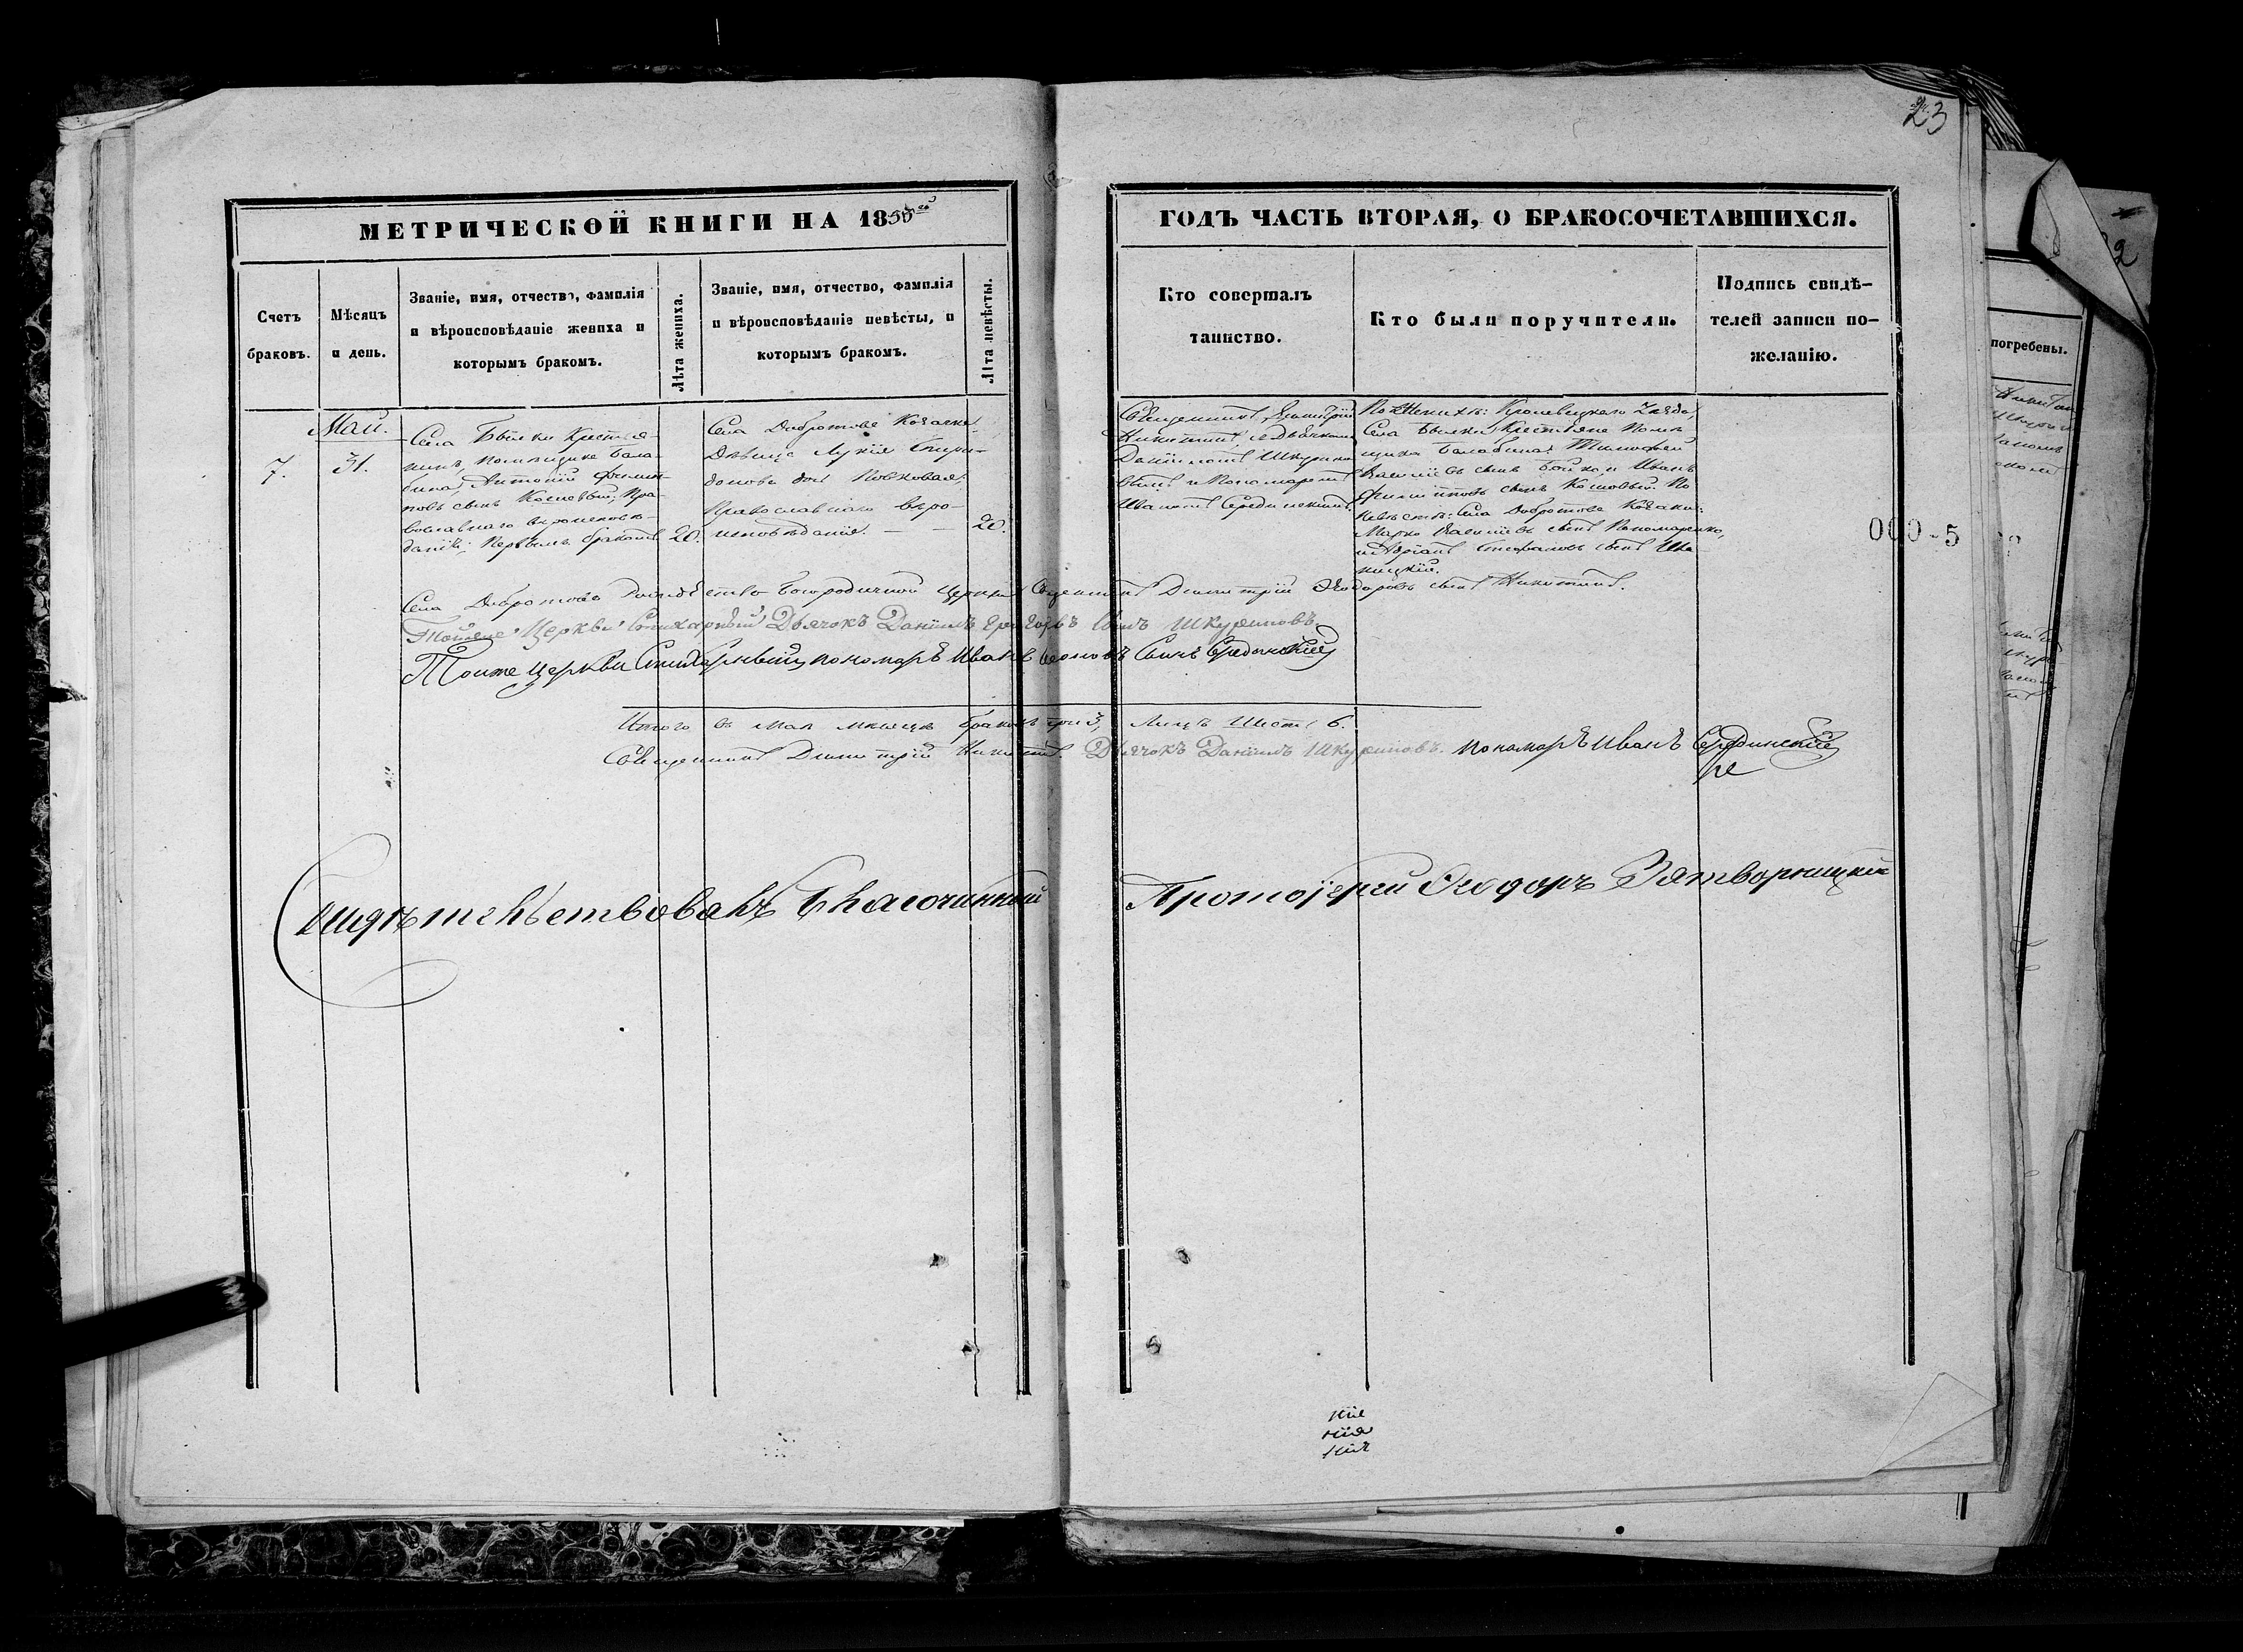 23
МЕТРИЧЕСКОЙ КНИГИ НА 185
ГОДЪ ЧАСТЬ ВТОРАЯ, О БРАКОСОЧЕТАВШИХСЯ.
Счетъ
браковъ.
Мѣсяцъ
и день.
Званіе, имя, отчество, фамилія
и вѣроисповѣданіе жениха и
которымъ бракомъ.
Лѣта жениха.
Званіе, имя, отчество, фамилія
и вѣроисповѣданіе невѣсты, и
которымъ бракомъ.
Лѣта невѣсты.
Кто совершалъ
таинство.
Кто были поручители.
Подпись свидѣ-
телей записи по-
желанію.
погребены.
Май.
7.
31.
Села Бѣлки Крестья-
нинъ, помѣщика Бала-
бина, Антоній Филип-
повъ сынъ Кошевый, Пра-
вославнаго вѣроисповѣ-
данія; Первымъ бракомъ
20.
Села Добротова Козачка
Дѣвица Лукія Спири-
донова дочь
Православнаго вѣро-
исповѣданія. —
20.
Священникъ Димитрій
Никитинъ, съ Дьячкомъ
Даніиломъ Шкурино-
вымъ и Пономаремъ
Иваномъ Серединскимъ.
По Женихѣ: Кролевецкаго уѣзда,
Села Бѣлки Крестьяне Помѣ-
щика Балабина: Тимофей
сынъ Бойко, и Иванъ
Филипповъ сынъ Кошовый. По
Невѣстѣ: Села Добротова Козаки:
Марко сынъ Пономаренко,
и Адріанъ Стефановъ сынъ Ива-
ницкій.
000-5
Села Добротова Рождество Богородичной Церкви Священникъ Димитрій Ѳеодоровъ сынъ Никитинъ.
Тойже Церкви Стихарный Дьячокъ Даніилъ Григорьевъ сынъ Шкуриновъ
Тоиже церкви Стихарный пономарь Иванъ сынъ Серединскій
Итого въ Маѣ мѣсяцѣ браковъ три 3, Лицъ шесть 6.
Священникъ Димитрій Никитинъ. Дьячокъ Даніилъ Шкуриновъ. пономарь Иванъ Серединскій
Свидѣтельствовалъ Благочинный Протоіерей Ѳеодоръ Затворницкій